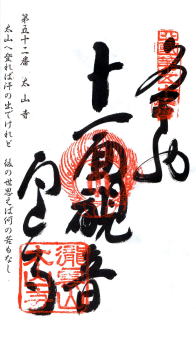 奉納
十一面観音
太山寺
第五十二番　太山寺
太山へ登れば汗の出でけれど
後の世思えば何の苦もなし